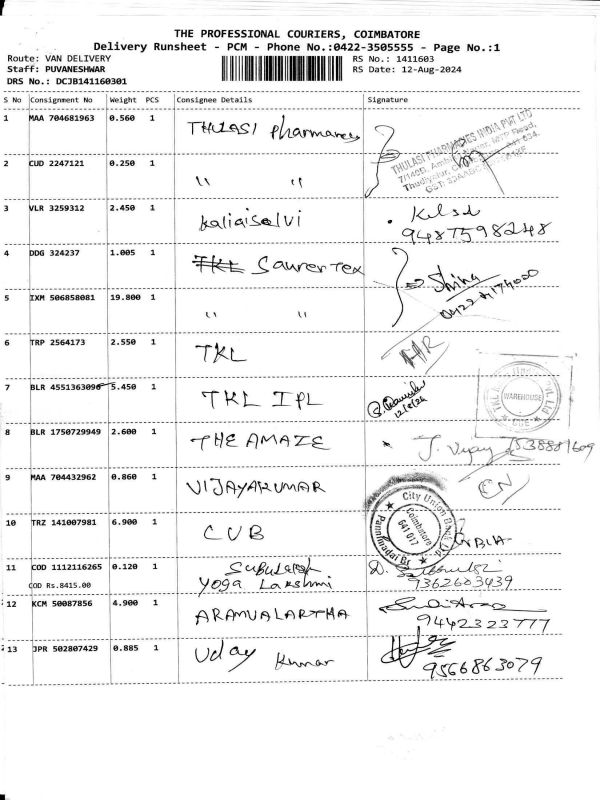 THE PROFESSIONAL COURIERS, COIMBATORE
Delivery Runsheet - PCM - Phone No.:0422-3505555 - Page No.:1
Route: VAN DELIVERY RS No.: 1411603
Staff: PUVANESHWAR RS Date: 12-Aug-2024
DRS No.: DCJB141160301
S No Consignment No Weight PCS Consignee Details Signature
1 MAA 704681963 0.560 1 THULASI pharmacies
THULASI PHARMACIES INDIA PVT LTD
2 CUD 2247121 0.250 1 " "
3 VLR 3259312 2.450 1 kaliaiselvi
9487598248
4 DDG 324237 1.005 1 TKL Saurer Tex
5 IXM 506858081 19.800 1 " "
6 TRP 2564173 2.550 1 TKL
7 BLR 4551363096 5.450 1 TKL IPL
12/8/24
WAREHOUSE
8 BLR 1750729949 2.600 1 THE AMAZE J. Vijay
9 MAA 704432962 0.860 1 VIJAYAKUMAR
10 TRZ 141007981 6.900 1 CUB
City Union Bank
Coimbatore
641 017
11 COD 1112116265 0.120 1
COD Rs.8415.00 Yoga Lakshmi 9362603439
12 KCM 50087856 4.900 1 ARAMVALARTHA
9442323777
13 JPR 502807429 0.885 1 Uday Kumar
9566863079